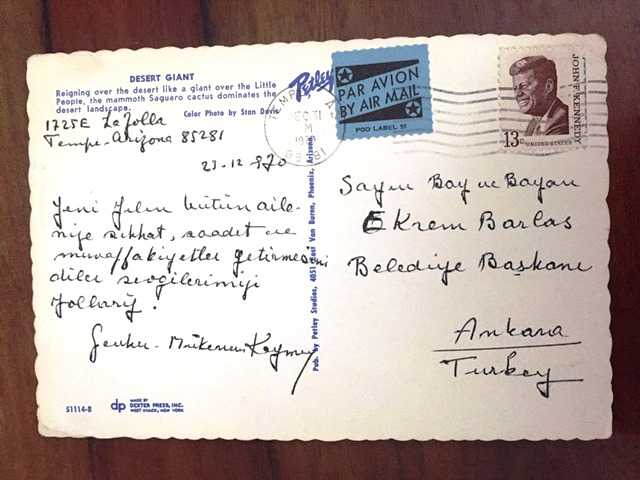 DESERT GIANT
Reigning over the desert like a giant over the Little
People, the mammoth Saguaro cactus dominates the
desert landscape.
Color Photo by Stan Davis
1725 E La Jolla
Tempe-Arizona 85281
23-12-970
Yeni Yılın bütün aile-
nize sıhhat, saadet ve
muvaffakiyetler getirmesini
diler sevgilerimizi
yollarız.
Mükerrem
51114-B
dp
MADE BY
DEXTER PRESS, INC.
WEST NYACK, NEW YORK
Petley
Pub. by Petley Studios, 4051 East Van Buren, Phoenix, Arizona
TEMPE
PAR AVION
BY AIR MAIL
POD LABEL 19
JOHN F. KENNEDY
13c UNITED STATES
Sayın Bay ve Bayan
Ekrem Barlas
Belediye Başkanı
Ankara
Turkey